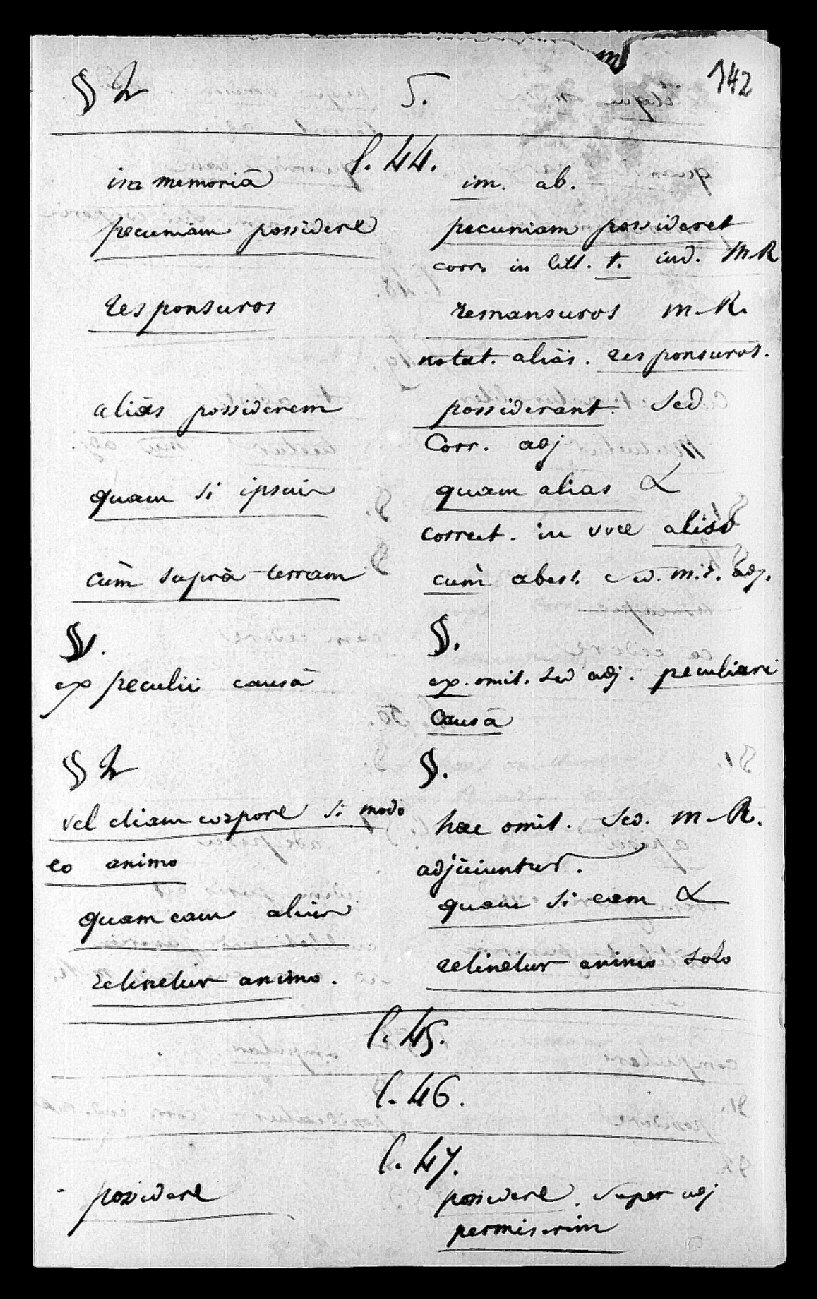 142
§ 2 5.
l. 44.
in memoriâ im. ab.
pecuniam possidere pecuniam possideret
corr. in litt. t. ead. M R
responsuros remansuros m. R.
notat. aliàs. responsuros.
aliàs possiderem possiderant. Sed
Corr. adj
quam si ipsum quam alias
correct. in voce alias
cùm suprà terram cùm abest. Sed. m. r. adj.
§. §.
ex peculii causâ ex. omit. sed adj. peculiari
causâ
§ 2 §.
vel etiam corpore si modo hæc omit. Sed. m. R.
eo animo adjiciuntur.
quam cum alius quam si cem
retinetur animo. retinetur animo solo
l. 45.
l. 46.
l. 47.
possidere possidere. super adj
permiserim